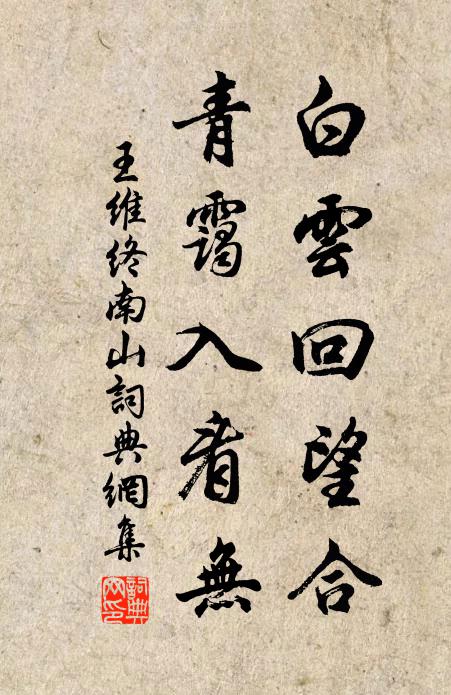 白雲回望合
青靄入看無
王維終南山詞典網集
詞典網印